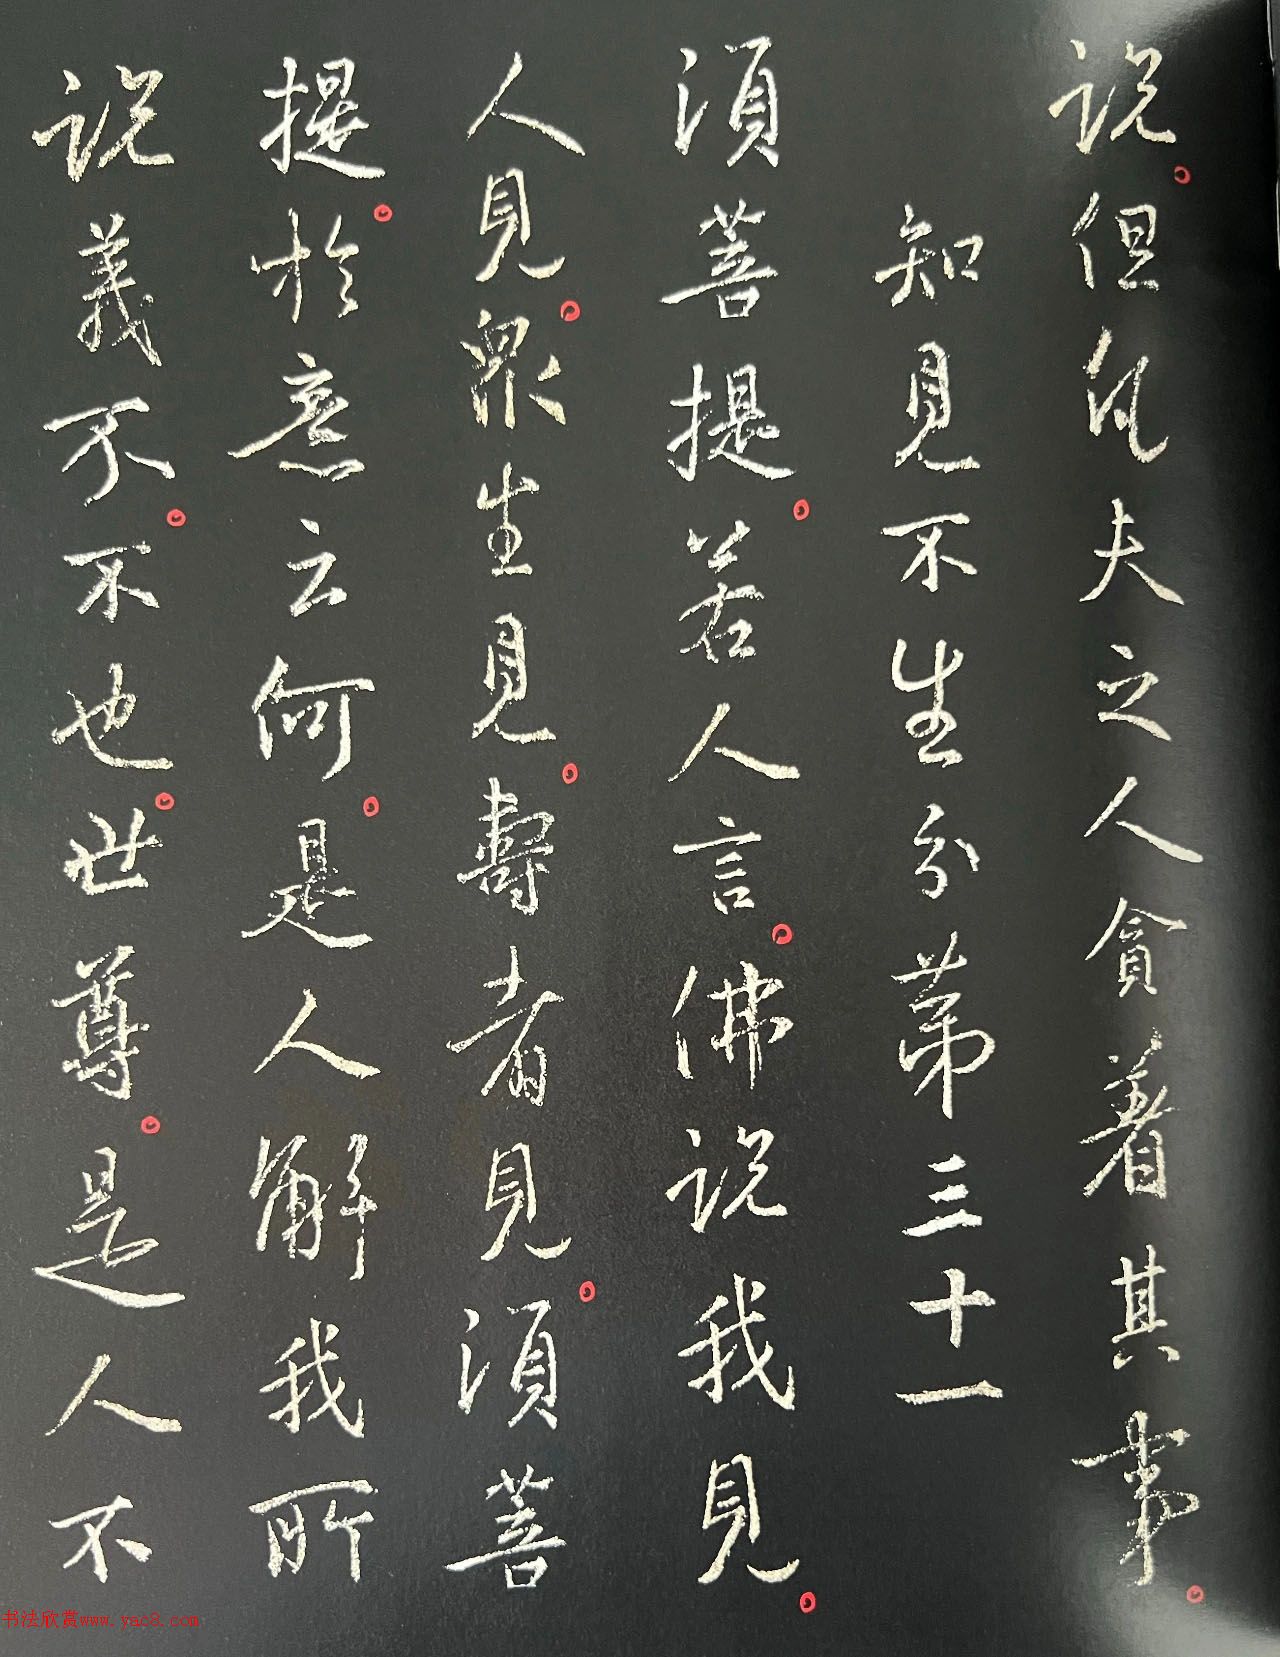 说。但凡夫之人貪著其事。
知見不生分第三十一
須菩提。若人言。佛说我見。
人見。眾生見。壽者見。須菩
提。於意云何。是人解我所
说義不。不也。世尊。是人不
书法欣赏www.yac8.com